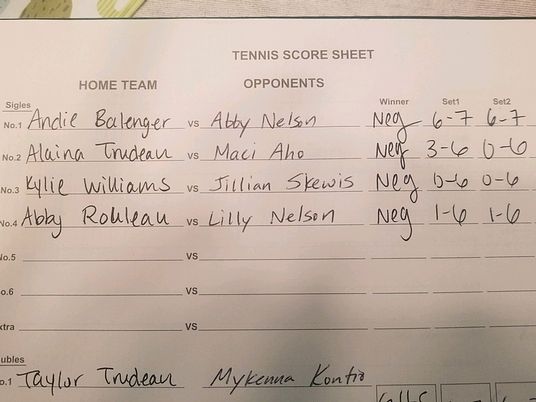 TENNIS SCORE SHEET
HOME TEAM OPPONENTS
Sigles Winner Set1 Set2
No.1 Andie Balenger vs Abby Nelson Neg 6-7 6-7
No.2 Alaina Trudeau vs Maci Aho Neg 3-6 0-6
No.3 Kylie Williams vs Jillian Skewis Neg 0-6 0-6
No.4 Abby Rouleau vs Lilly Nelson Neg 1-6 1-6
No.5 vs
o.6 vs
xtra vs
ubles
o.1 Taylor Trudeau Mykenna Kontio